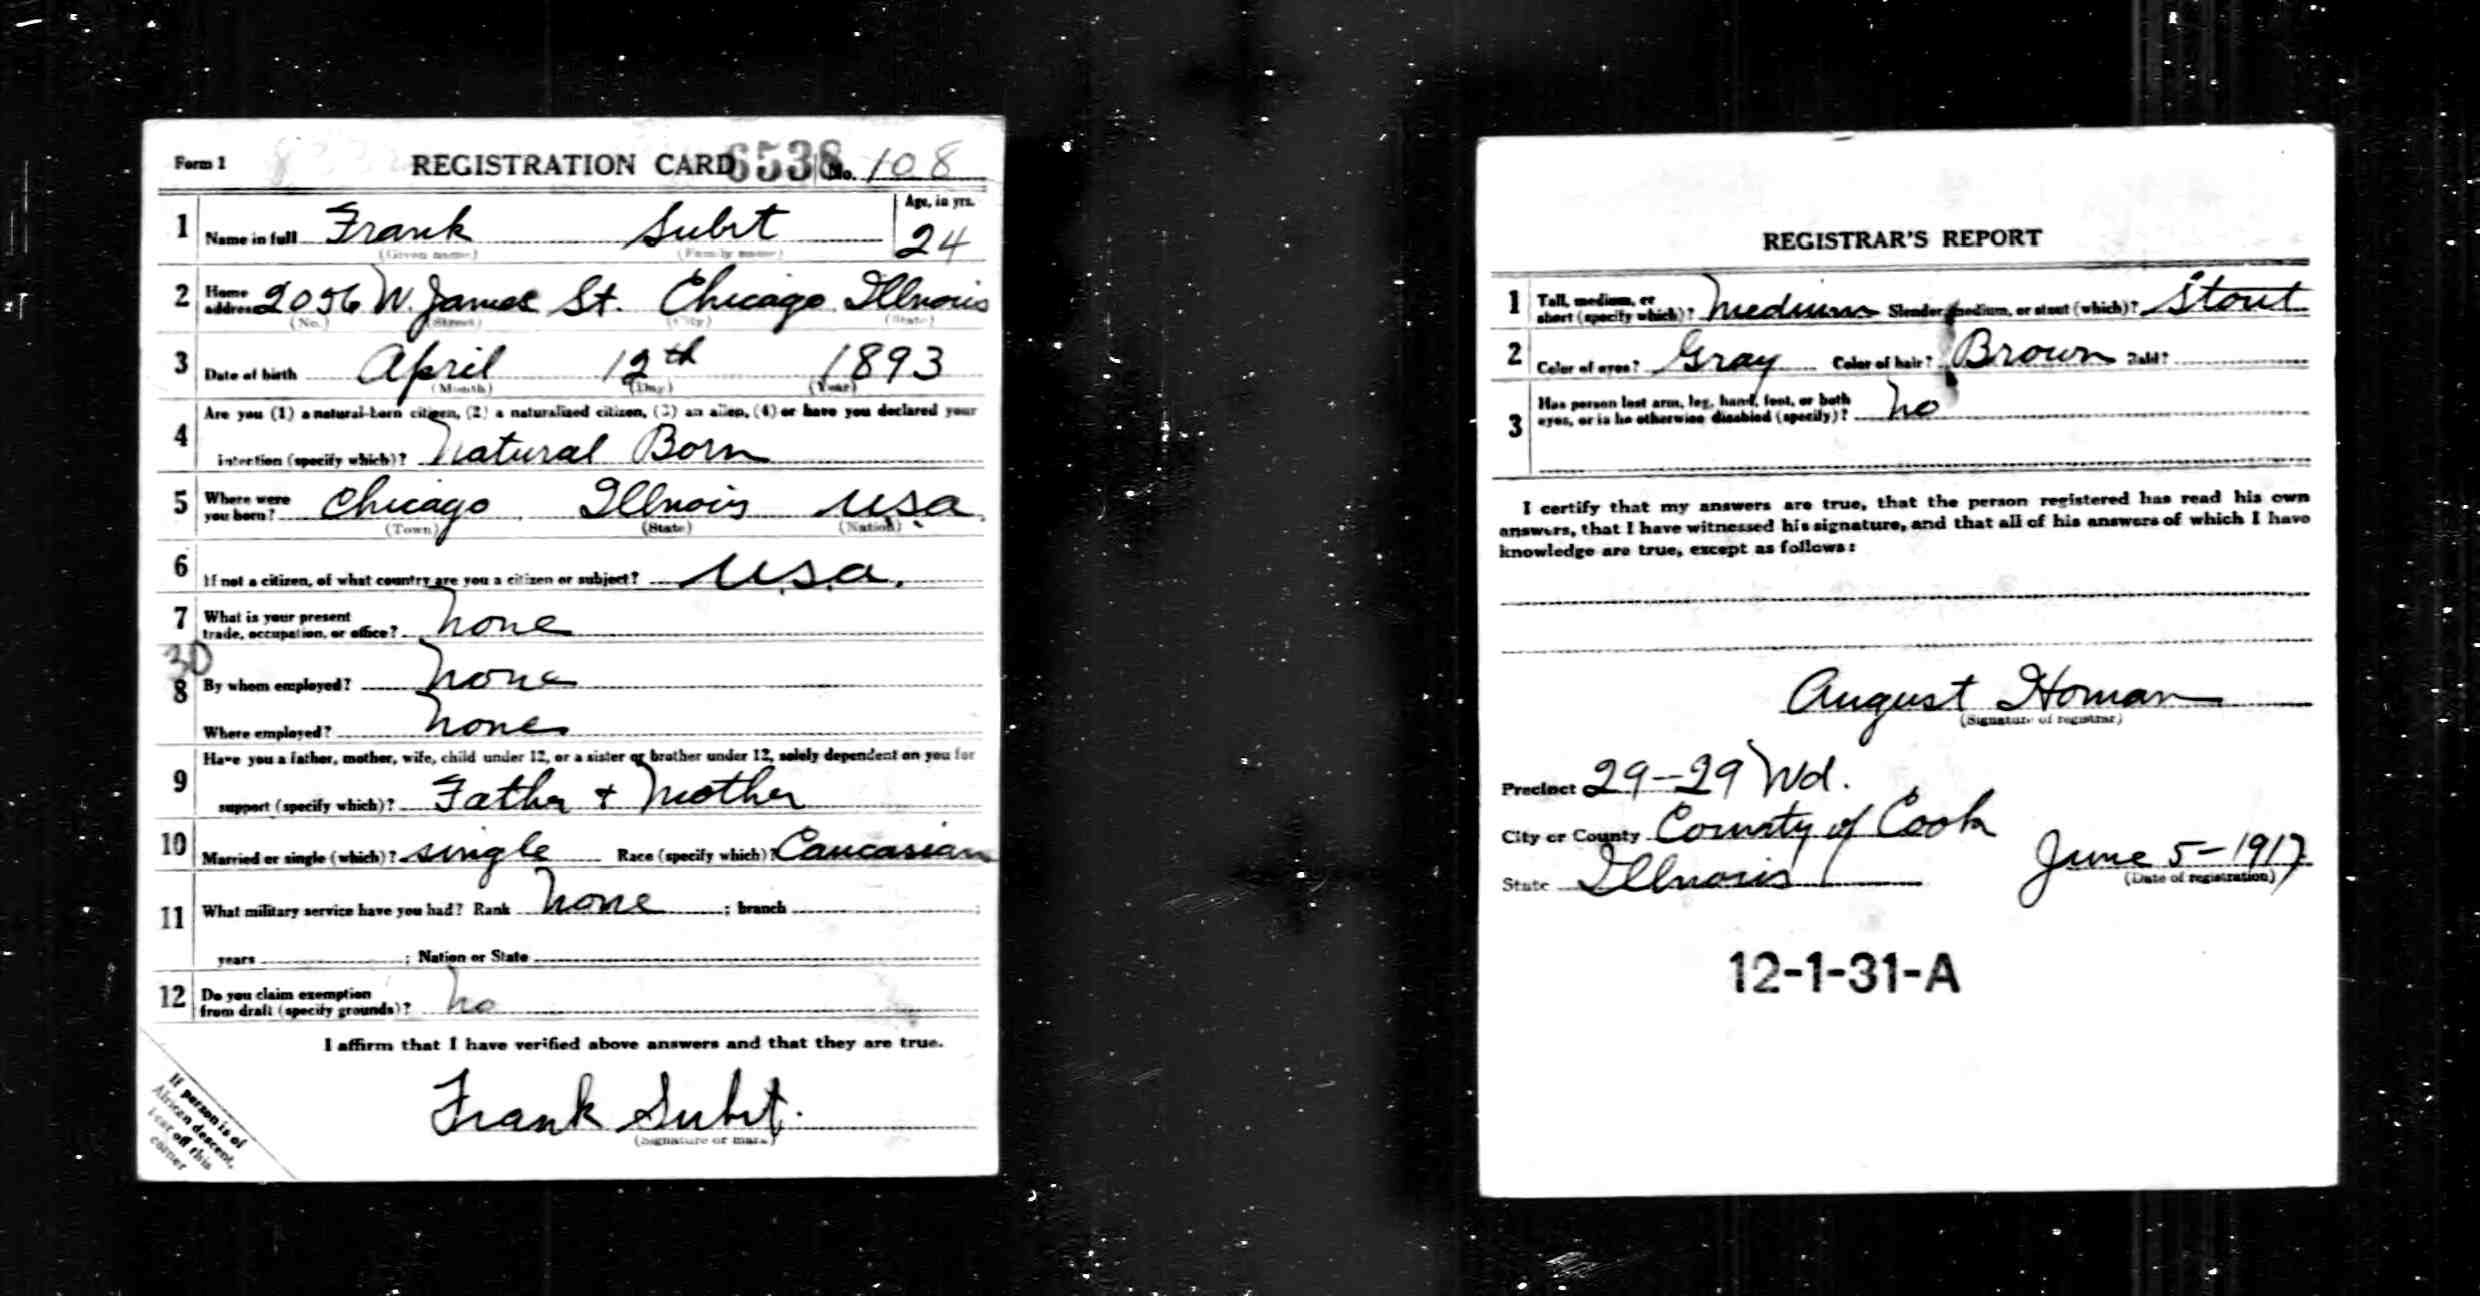 Form 1 REGISTRATION CARD 6538 No. 108
1 Name in full Frank Subrt Age, in yrs. 24
(Given name) (Family name)
2 Home address 2056 W. James St. Chicago Illnois
(No.) (Street) (City) (State)
3 Date of birth April 12th 1893
(Month) (Day) (Year)
Are you (1) a natural-born citizen, (2) a naturalized citizen, (3) an alien, (4) or have you declared your
4 intention (specify which)? Natural Born
5 Where were you born? Chicago Illnois USA
(Town) (State) (Nation)
6 If not a citizen, of what country are you a citizen or subject? U.S.A.
7 What is your present trade, occupation, or office? None
30
8 By whom employed? None
Where employed? None
Have you a father, mother, wife, child under 12, or a sister or brother under 12, solely dependent on you for
9 support (specify which)? Father + Mother
10 Married or single (which)? single Race (specify which)? Caucasian
11 What military service have you had? Rank None ; branch ;
years ; Nation or State
12 Do you claim exemption from draft (specify grounds)? No
I affirm that I have verified above answers and that they are true.
Frank Subrt.
(Signature or mark)
If person is of
African descent,
tear off this
corner
REGISTRAR'S REPORT
1 Tall, medium, or short (specify which)? Medium Slender, medium, or stout (which)? Stout
2 Color of eyes? Gray Color of hair? Brown Bald?
3 Has person lost arm, leg, hand, foot, or both eyes, or is he otherwise disabled (specify)? No
I certify that my answers are true, that the person registered has read his own
answers, that I have witnessed his signature, and that all of his answers of which I have
knowledge are true, except as follows:
August Homan
(Signature of registrar)
Precinct 29-29 Wd.
City or County County of Cook
State Illnois June 5-1917
(Date of registration)
12-1-31-A